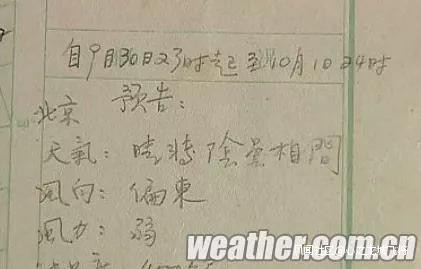 自9月30日23时起至10月1日24时
预告：
北京
天氣：晴转陰曇相間
風向：偏東
風力：弱
weather.com.cn